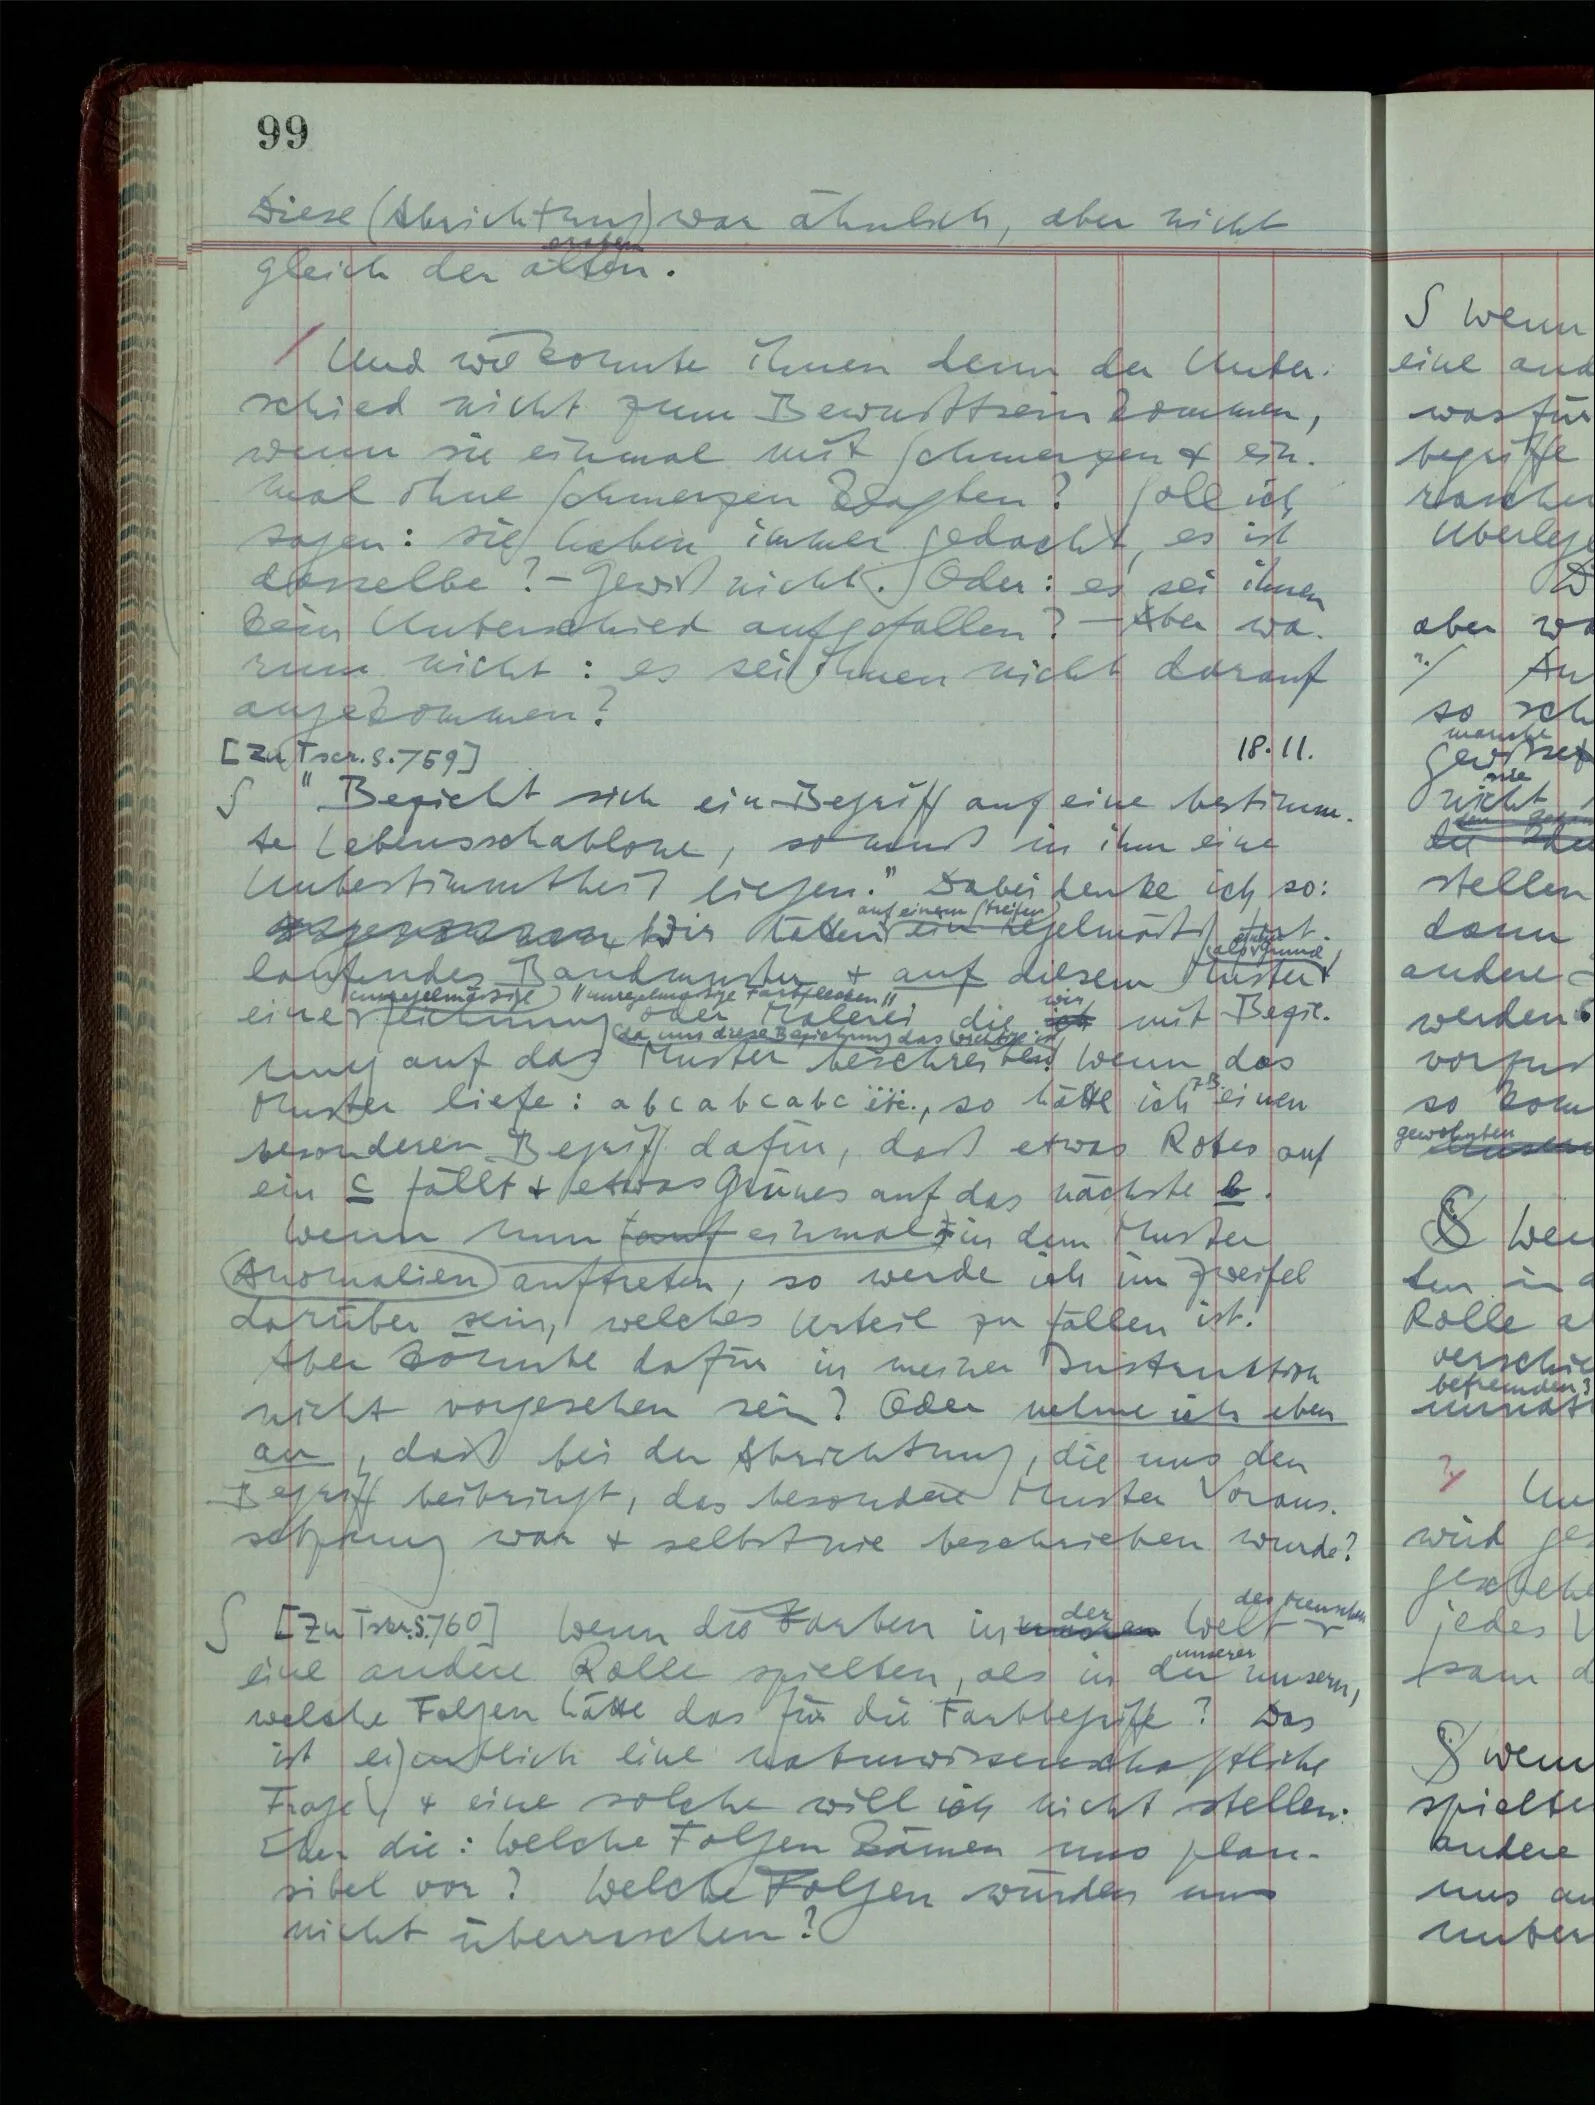 99
Diese (Abrichtung) war ähnlich, aber nicht
ersten
gleich der alten.
/ Und wie konnte ihnen denn der Unter-
schied nicht zum Bewußtsein kommen,
wenn sie einmal mit Schmerzen & ein-
mal ohne Schmerzen klagten? Soll ich
sagen: sie haben immer gedacht, es ist
dasselbe? – Gewiß nicht. Oder: es sei ihnen
kein Unterschied aufgefallen? – Aber wa-
rum nicht: es sei ihnen nicht darauf
angekommen?
[Zu Tscr. S. 759] 18.11.
∫ "Bezieht sich ein Begriff auf eine bestimm-
te Lebensschablone, so muß in ihm eine
Unbestimmtheit liegen." Dabei denke ich so:
auf einem Streifen
Wir hätten ein regelmäßig fort-
als Grund
laufendes Bandmuster & auf diesem Muster
unregelmäßige "unregelmäßige Farbflecken"
wir
eine Zeichnung oder Malerei, die ich mit Bezie-
(da uns diese Beziehung das Wichtige ist)
hung auf das Muster beschreiben. Wenn das
z.B.
Muster liefe: a b c a b c a b c etc., so hätte ich einen
besonderen Begriff dafür, daß etwas Rotes auf
ein c fällt & etwas Grünes auf das nächste b.
Wenn nun (auf einmal) in dem Muster
Anomalien auftreten, so werde ich im Zweifel
darüber sein, welches Urteil zu fällen ist.
Aber könnte dafür in meiner Instruktion
nicht vorgesehen sein? Oder nehme ich eben
an, daß bei der Abrichtung, die uns den
Begriff beibringt, das besondere Muster Voraus-
setzung war & selbst nie beschrieben wurde?
der Menschen
der
∫ [Zu Tscr. S. 760] Wenn die Farben in unseren Welt
unserer
eine andere Rolle spielten, als in der unsern,
welche Folgen hätte das für die Farbbegriffe? Das
ist eigentlich eine naturwissenschaftliche
Frage, & eine solche will ich nicht stellen.
Eher die: Welche Folgen kämen uns plau-
sibel vor? Welche Folgen würden uns
nicht überraschen?
∫ Wenn
eine and
was für
begriffe
raschen
Überleg
D
aber wa
?/ An
so sch
manche
nicht
stellen
dann
andere
werden.
so kom
gewohnten
∫ Wen
ten in d
Rolle a
verschie
befremden?
?/ Un
wird ges
gescheh
jedes V
sam d
∫ Wenn
spielte
andere
uns an